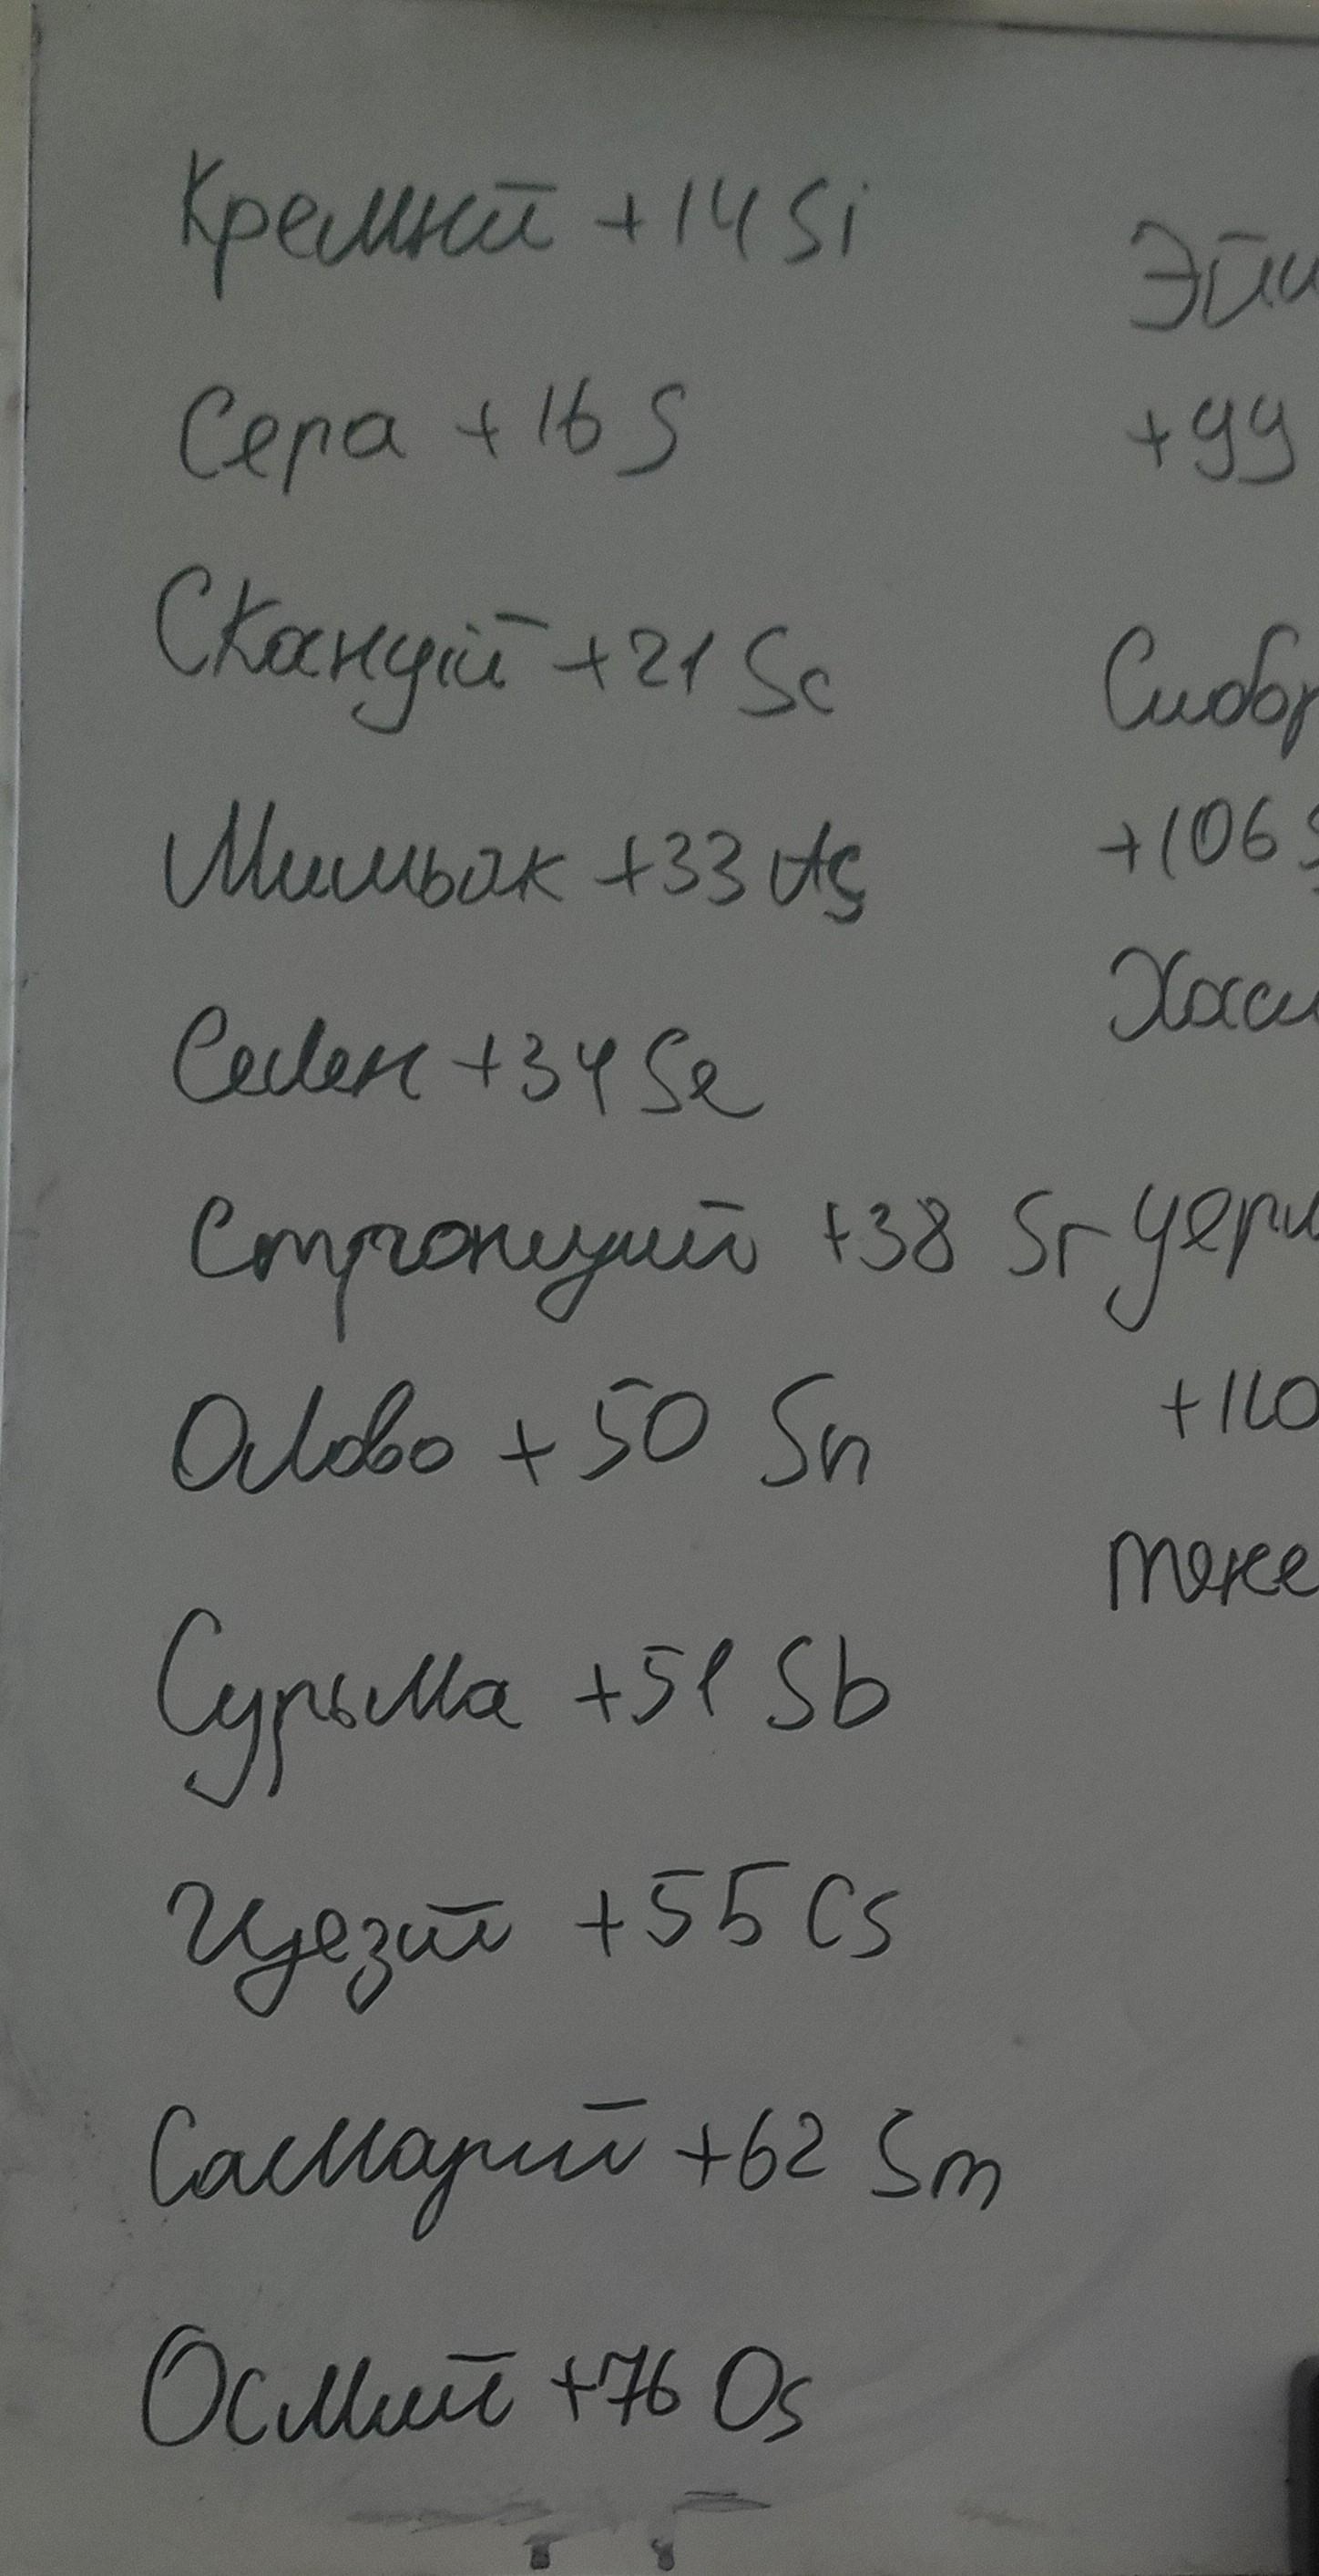 Кремний +14 Si
Сера +16 S
Сканций +21 Sc
Мышьяк +33 As
Селен +34 Se
Стронций +38 Sr
Олово +50 Sn
Сурьма +51 Sb
Цезий +55 Cs
Самарий +62 Sm
Осмий +76 Os
Эйн
+99
Сибор
+106 S
Хасси
+110